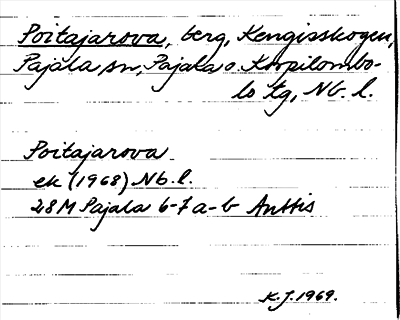 Poitajarova, berg, Kengisskogen,
Pajala sn, Pajala o. Korpilombo-
lo tg, Nb. l.
Poitajarova
ek (1968) Nb. l.
28M Pajala 6-7 a-b Anttis
K.J. 1969.